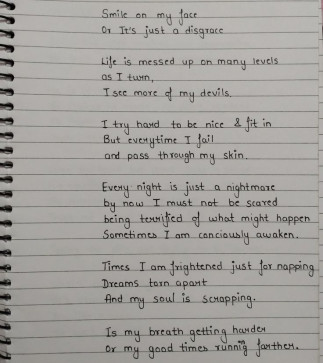 Smile on my face
Or It's just a disgrace
Life is messed up on many levels
as I turn,
I see more of my devils.
I try hard to be nice & fit in
But everytime I fail
and pass through my skin.
Every night is just a nightmare
by now I must not be scared
being terrified of what might happen
Sometimes I am conciously awaken.
Times I am frightened just for napping
Dreams torn apart
And my soul is scrapping.
Is my breath getting harder
Or my good times runnig farther.